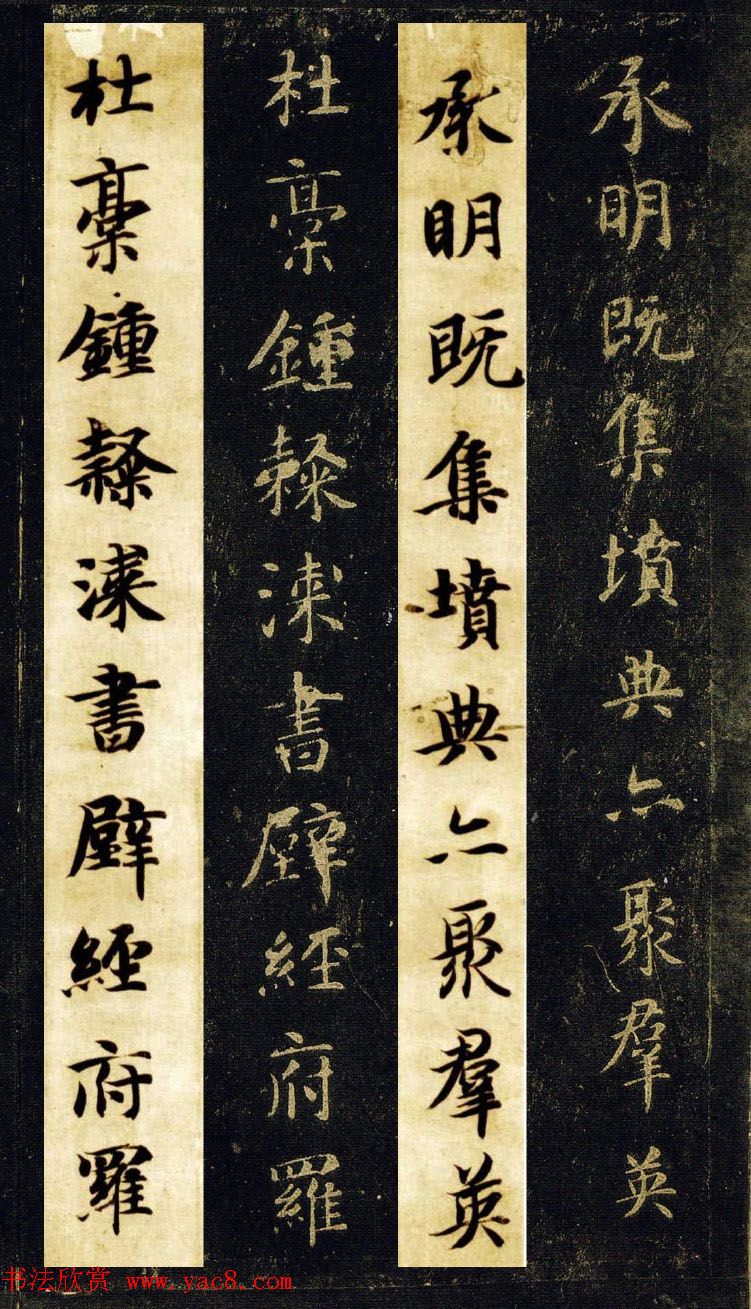 承明既集墳典亦聚羣英
承明既集墳典亦聚羣英
杜稾鍾隸漆書壁經府羅
杜稾鍾隸漆書壁經府羅
书法欣赏 www.yac8.com